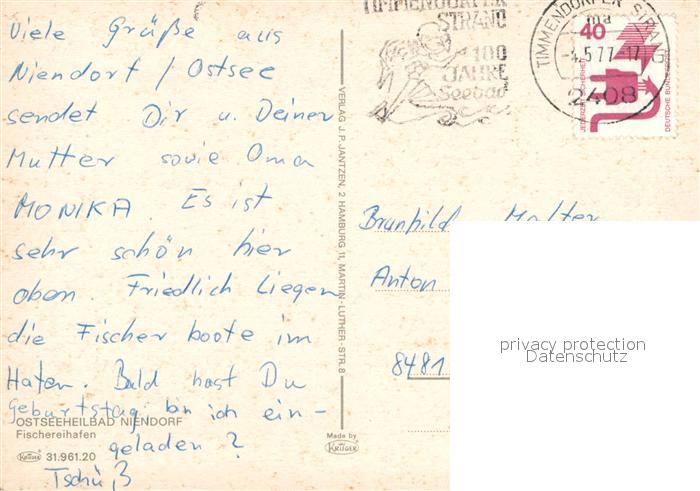 Viele Grüße aus
Niendorf / Ostsee
sendet Dir u. Deiner
Mutter sowie Oma
MONIKA. Es ist
sehr schön hier
oben. Friedlich Liegen
die Fischer boote im
Hafen. Bald hast Du
Geburtstag bin ich ein-
geladen?
Tschüß
OSTSEEHEILBAD NIENDORF
Fischereihafen
KRÜGER 31.961.20
VERLAG J. P. JANTZEN, 2 HAMBURG 11, MARTIN-LUTHER-STR. 8
Made by
KRÜGER
TIMMENDORFER
STRAND
100
JAHRE
Seebad
TIMMENDORFER STRAND
ma
-4.5.77-17
2408
40
JEDERZEIT SICHERHEIT
DEUTSCHE BUNDESPOST
Brunhild Molter
Anton
8481
privacy protection
Datenschutz